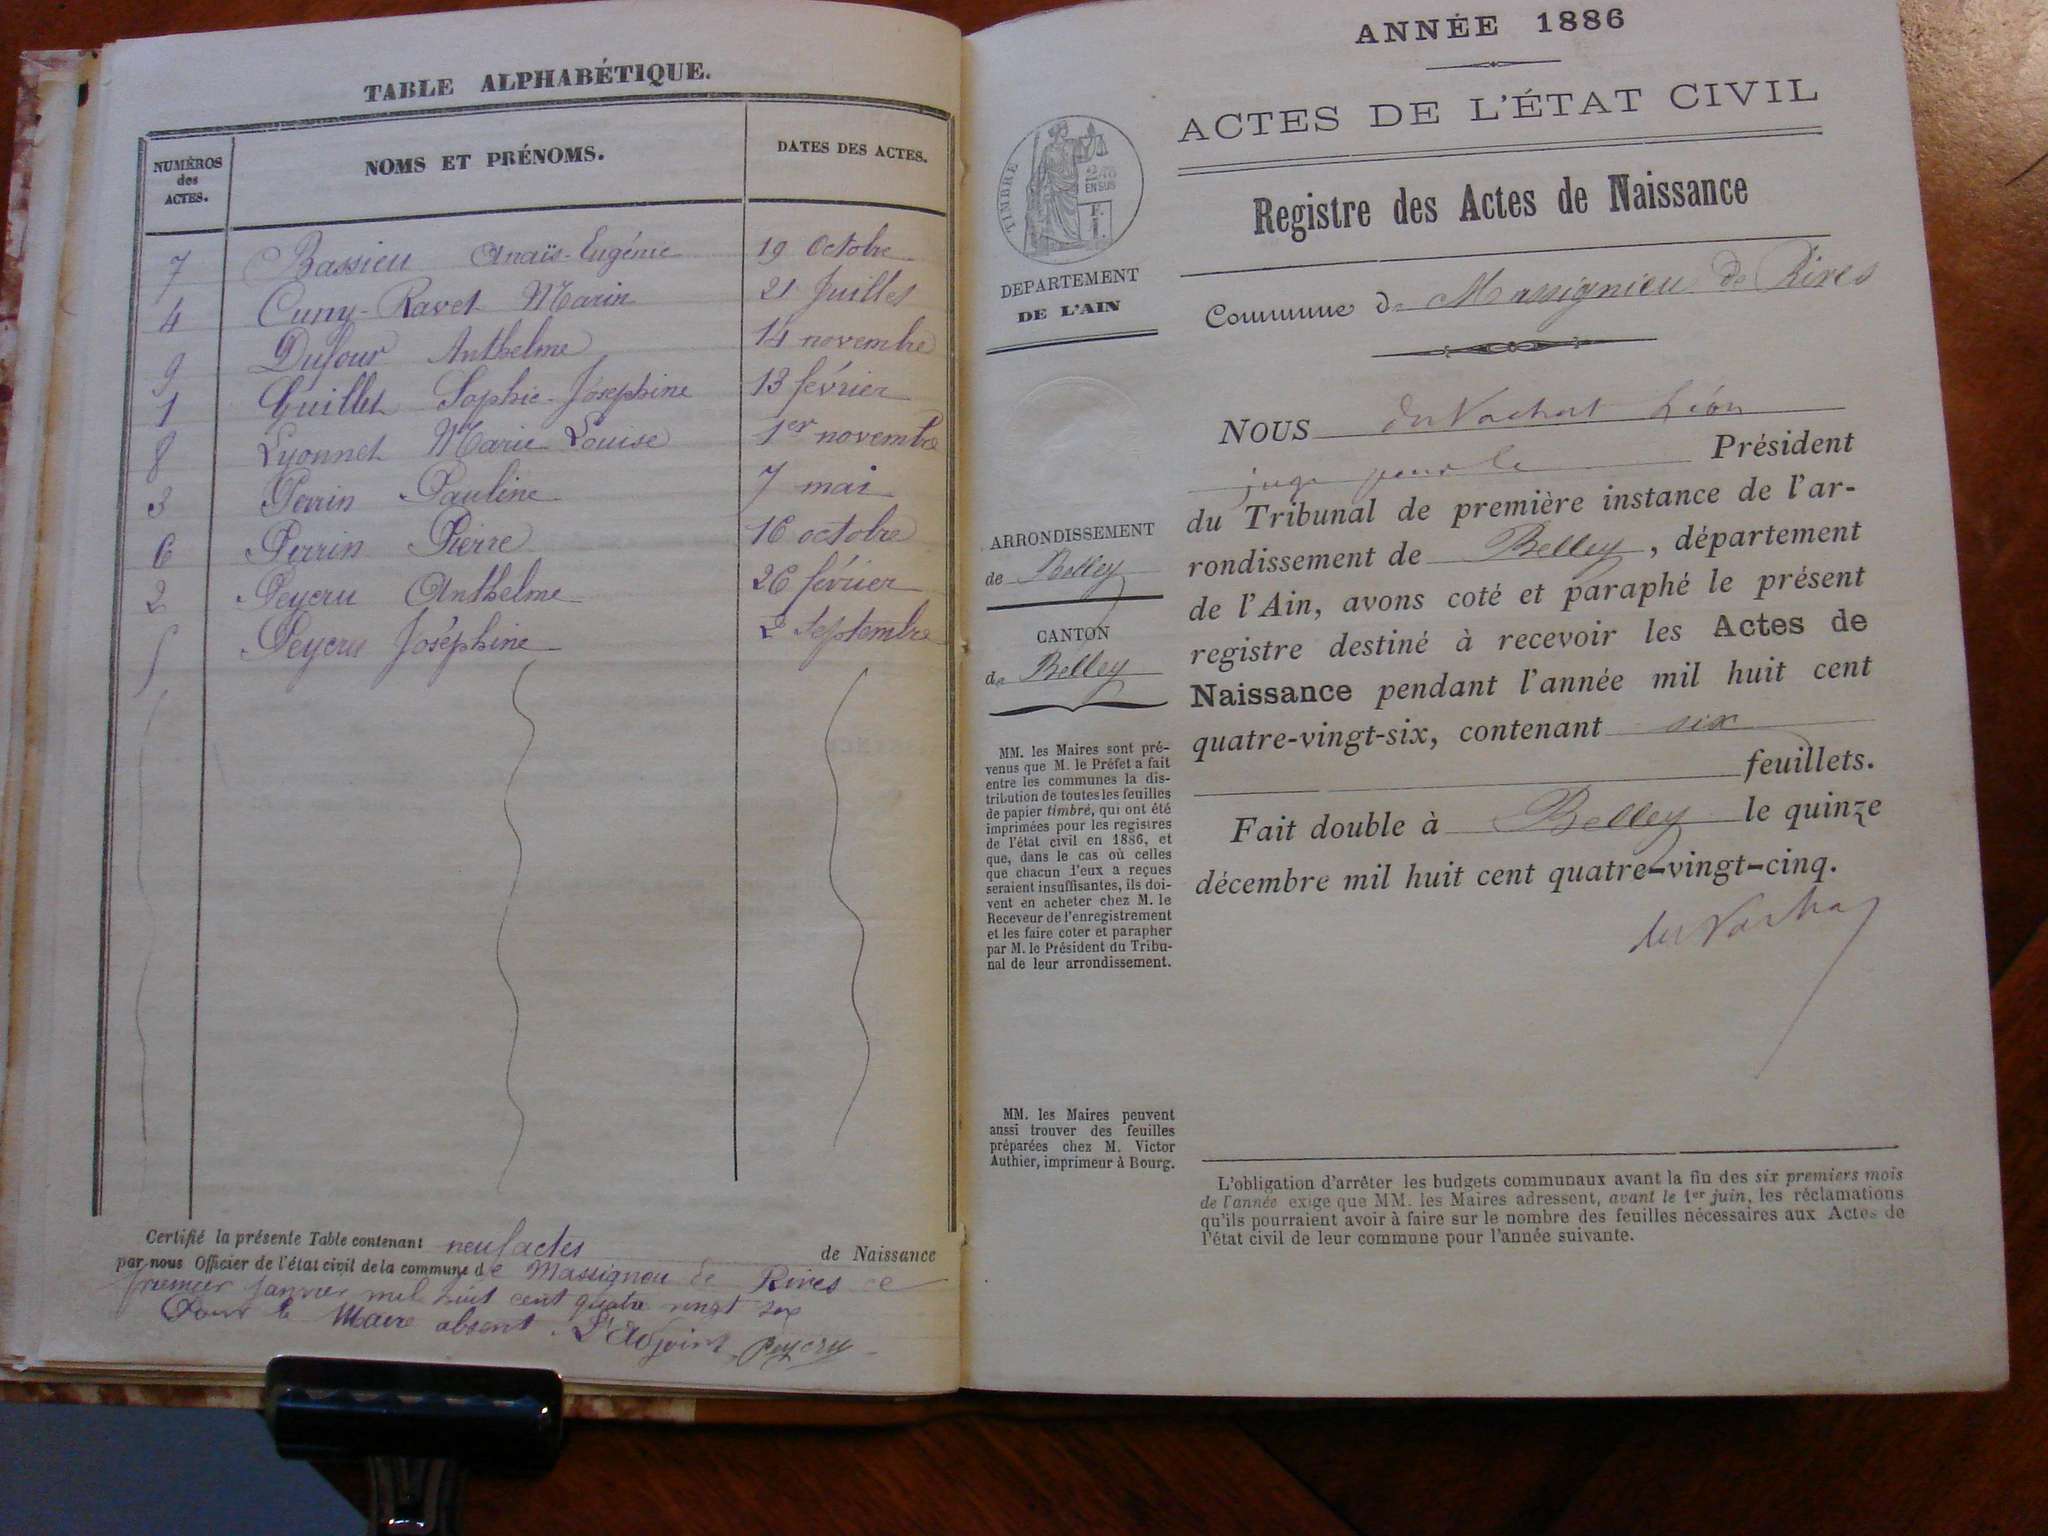 TABLE ALPHABÉTIQUE.
NUMÉROS
des
ACTES.
NOMS ET PRÉNOMS.
DATES DES ACTES.
7 Bassieu Anaïs-Eugénie 19 Octobre
4 Cuny-Ravet Marin 21 Juillet
9 Dufour Anthelme 14 novembre
1 Guillet Sophie-Joséphine 13 février
8 Lyonnet Marie Louise 1er novembre
3 Perrin Pauline 7 mai
6 Perrin Pierre 16 octobre
2 Peycru Anthelme 26 février
5 Peycru Joséphine 2 Septembre
Certifié la présente Table contenant neuf actes de Naissance
par nous Officier de l'état civil de la commune de Massignou de Rives ce
premier Janvier mil huit cent quatre vingt six
Pour le Maire absent. L'Adjoint, Peycru
ANNÉE 1886
ACTES DE L'ÉTAT CIVIL
TIMBRE
2/10
EN SUS
Registre des Actes de Naissance
DEPARTEMENT
DE L'AIN
Commune de Massignieu de Rives
NOUS Léon
juge pour le Président
du Tribunal de première instance de l'ar-
rondissement de Belley, département
de l'Ain, avons coté et paraphé le présent
registre destiné à recevoir les Actes de
Naissance pendant l'année mil huit cent
quatre-vingt-six, contenant six
feuillets.
Fait double à Belley le quinze
décembre mil huit cent quatre-vingt-cinq.
ARRONDISSEMENT
de Belley
CANTON
de Belley
MM. les Maires sont pré-
venus que M. le Préfet a fait
entre les communes la dis-
tribution de toutes les feuilles
de papier timbré, qui ont été
imprimées pour les registres
de l'état civil en 1886, et
que, dans le cas où celles
que chacun d'eux a reçues
seraient insuffisantes, ils doi-
vent en acheter chez M. le
Receveur de l'enregistrement
et les faire coter et parapher
par M. le Président du Tribu-
nal de leur arrondissement.
MM. les Maires peuvent
aussi trouver des feuilles
préparées chez M. Victor
Authier, imprimeur à Bourg.
L'obligation d'arrêter les budgets communaux avant la fin des six premiers mois
de l'année exige que MM. les Maires adressent, avant le 1er juin, les réclamations
qu'ils pourraient avoir à faire sur le nombre des feuilles nécessaires aux Actes de
l'état civil de leur commune pour l'année suivante.